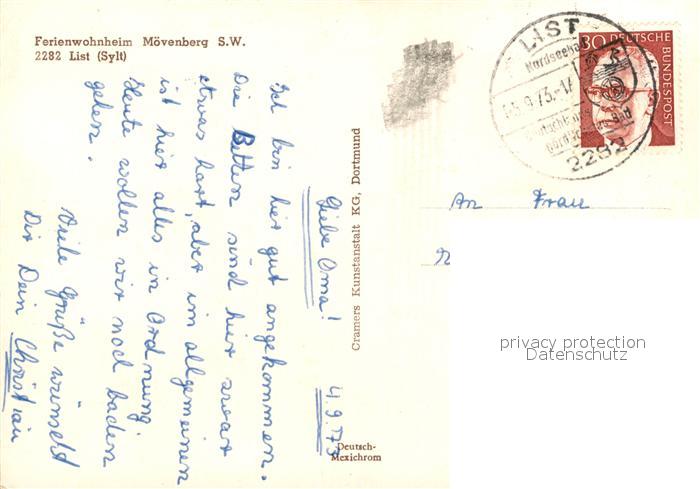 Ferienwohnheim Mövenberg S.W.
2282 List (Sylt)
4.9.73
Liebe Oma!
Ich bin hier gut angekommen.
Die Betten sind hier zwar
etwas hart, aber im allgemeinen
ist hier alles in Ordnung.
Heute wollen wir noch baden
gehen.
Viele Grüße wünscht
Dir Dein Christian
Cramers Kunstanstalt KG, Dortmund
Deutsch-
Mexichrom
LIST
Nordseebad
9.73.-17
2282
30 DEUTSCHE
BUNDESPOST
An Frau
privacy protection
Datenschutz